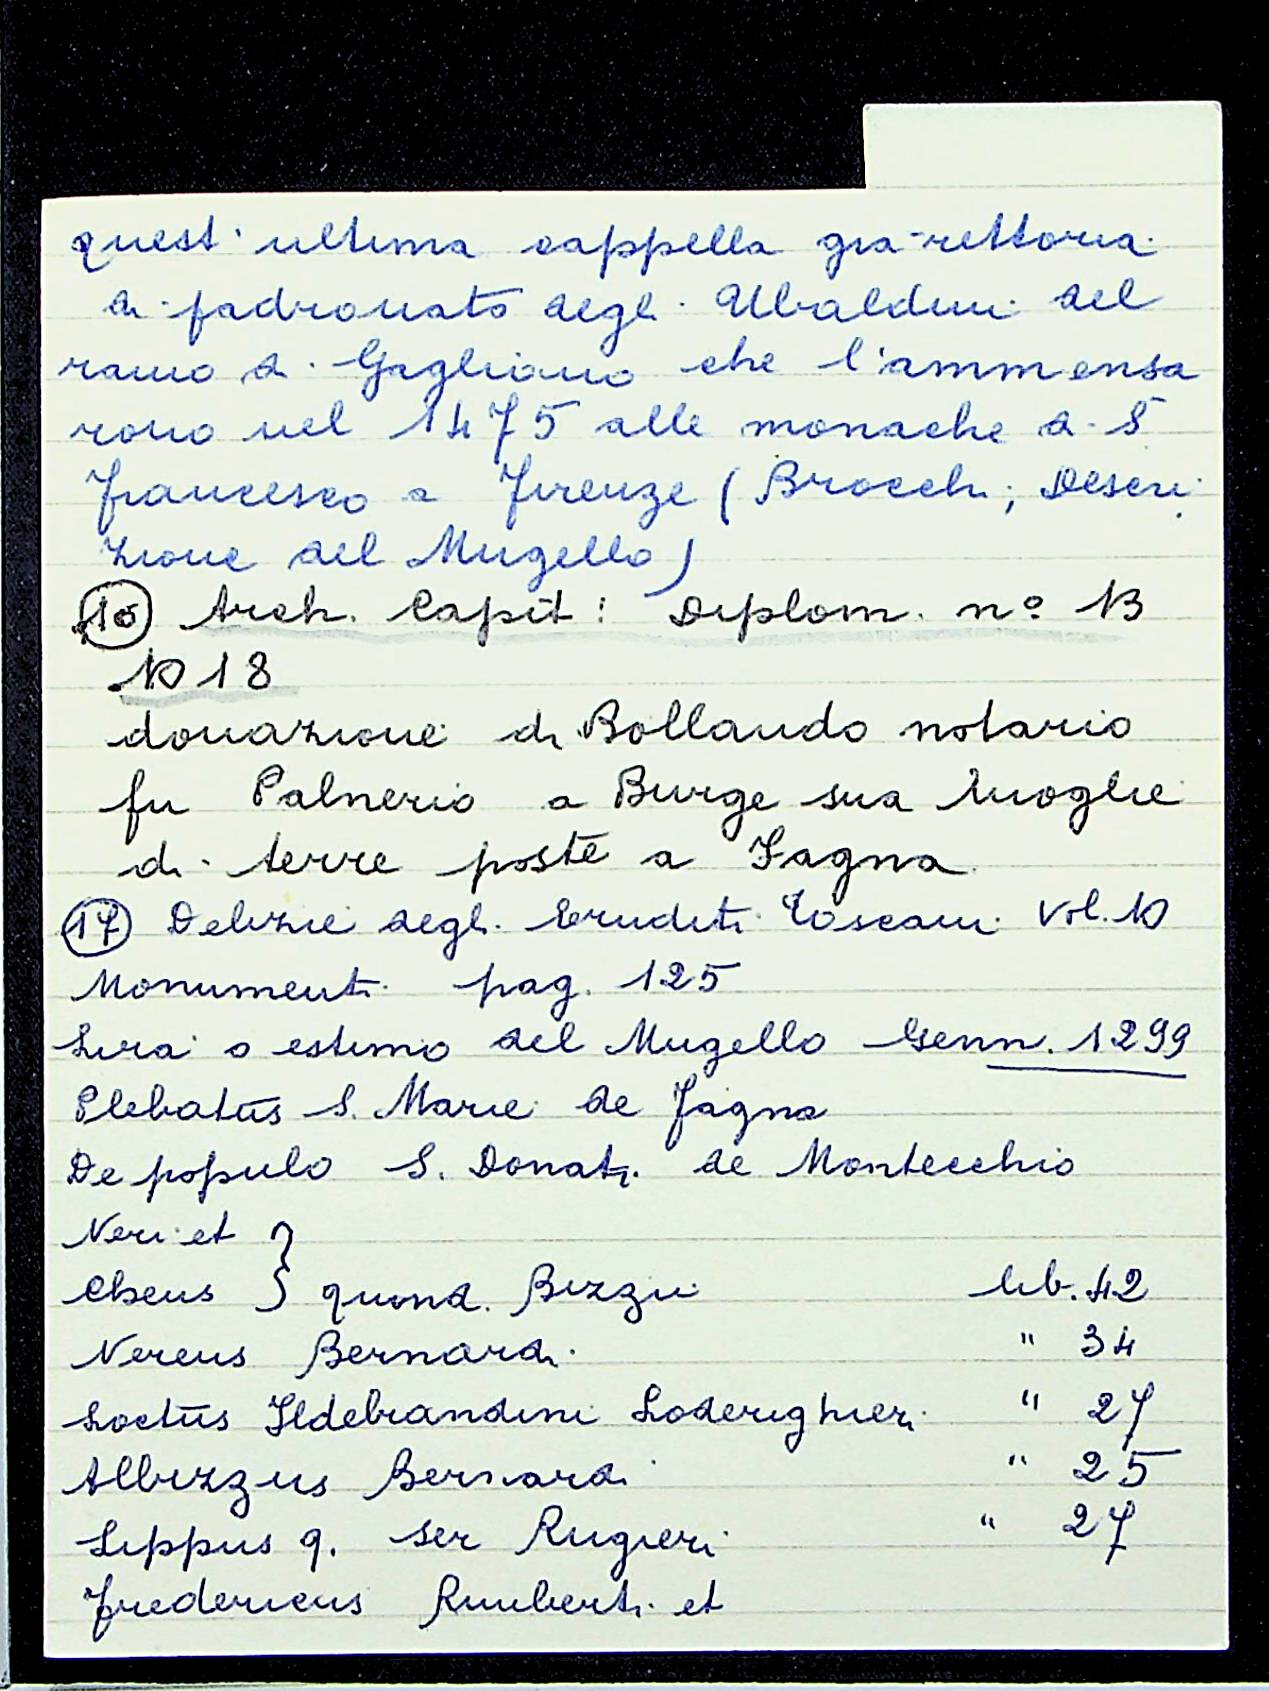 quest'ultima cappella gia rettoria
di padronato degli Ubaldini del
ramo di Gagliano che l'ammensa
rono nel 1475 alle monache di S
Francesco a Firenze (Brocchi, Descri
zione del Mugello)
16 Arch. Capit: Diplom. n° 13
1018
donazione di Bollando notario
fu Palnerio a Burge sua moglie
di terre poste a Fagna
17 Delizie degli Eruditi Toscani Vol. 10
Monumenti pag. 125
Lira o estimo del Mugello Genn. 1299
Plebatus S. Marie de Fagna
De populo S. Donati de Montecchio
Neri et }
Cheus } quond. Bizzi lib. 42
Nereus Bernardi " 34
Loctus Ildebrandini Loderighieri " 27
Albizzus Bernardi " 25
Lippus q. ser Rugieri " 27
Fredericus Runberti et